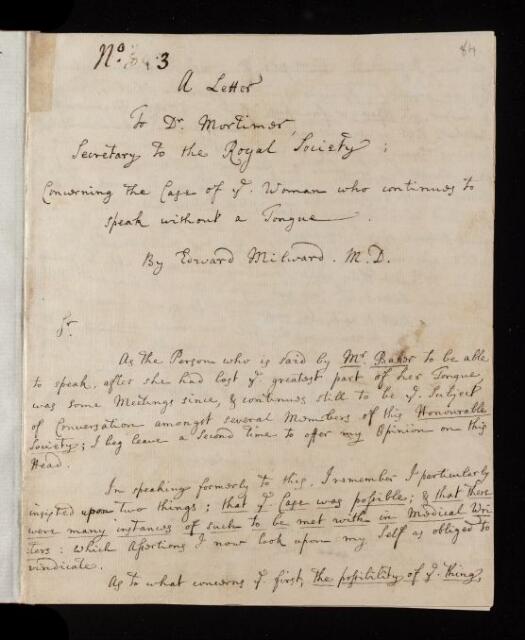 No. 3
84
A Letter
To Dr. Mortimer,
Secretary to the Royal Society;
Concerning the Case of ye. Woman who continues to
speak without a Tongue.
By Edward Milward. M.D.
Sr.
As the Person who is said by Mr. Baker to be able
to speak, after she had lost ye. greatest part of her Tongue,
was some Meetings since, & continues still to be ye. Subject
of Conversation amongst several Members of this Honourable
Society; I beg leave a Second time to offer my Opinion on this
Head.
In speaking formerly to this, I remember I particularly
insisted upon two things; that ye. Case was possible; & that there
were many instances of such to be met with in Medical Wri-
ters: which Assertions I now look upon my self as obliged to
vindicate.
As to what concerns ye. first, the possibility of ye. thing,